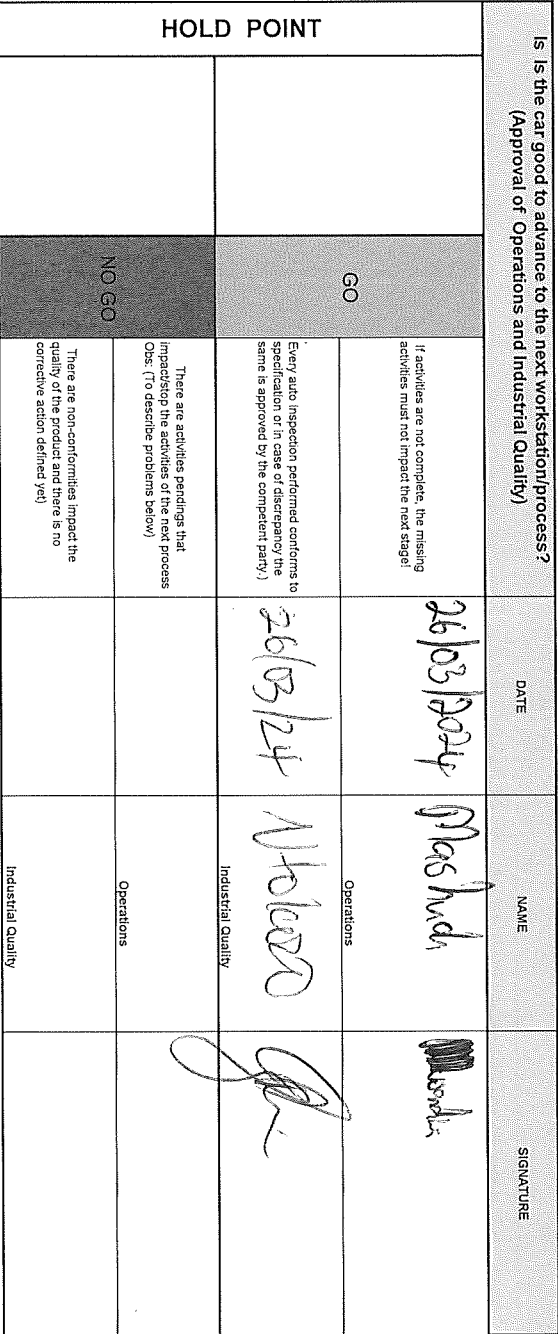 HOLD POINT
Is Is the car good to advance to the next workstation/process?
(Approval of Operations and Industrial Quality)
DATE
NAME
SIGNATURE
GO
If activities are not complete, the missing
activities must not impact the next stage!
26/03/2024
Mashudu
Operations
Every auto inspection performed conforms to
specification or in case of discrepancy the
same is approved by the competent party.)
26/03/24
Industrial Quality
NO GO
There are activities pendings that
impact/stop the activities of the next process
Obs: (To describe problems below)
Operations
There are non-conformities impact the
quality of the product and there is no
corrective action defined yet)
Industrial Quality